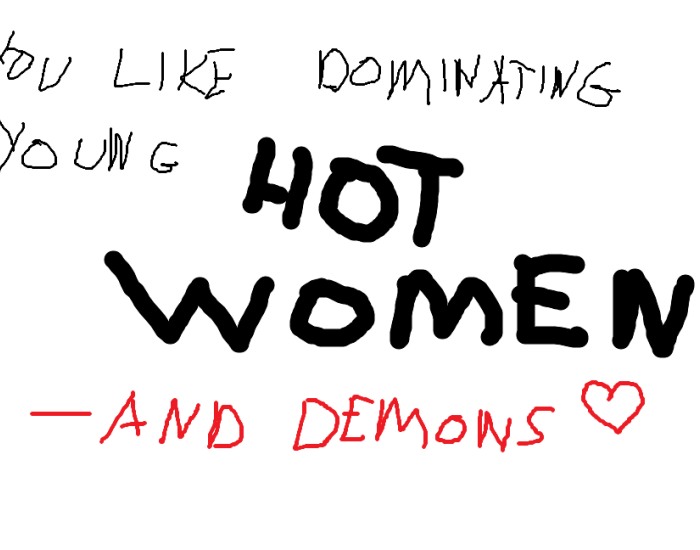 YOU LIKE DOMINATING
YOUNG
HOT
WOMEN
—AND DEMONS ♡